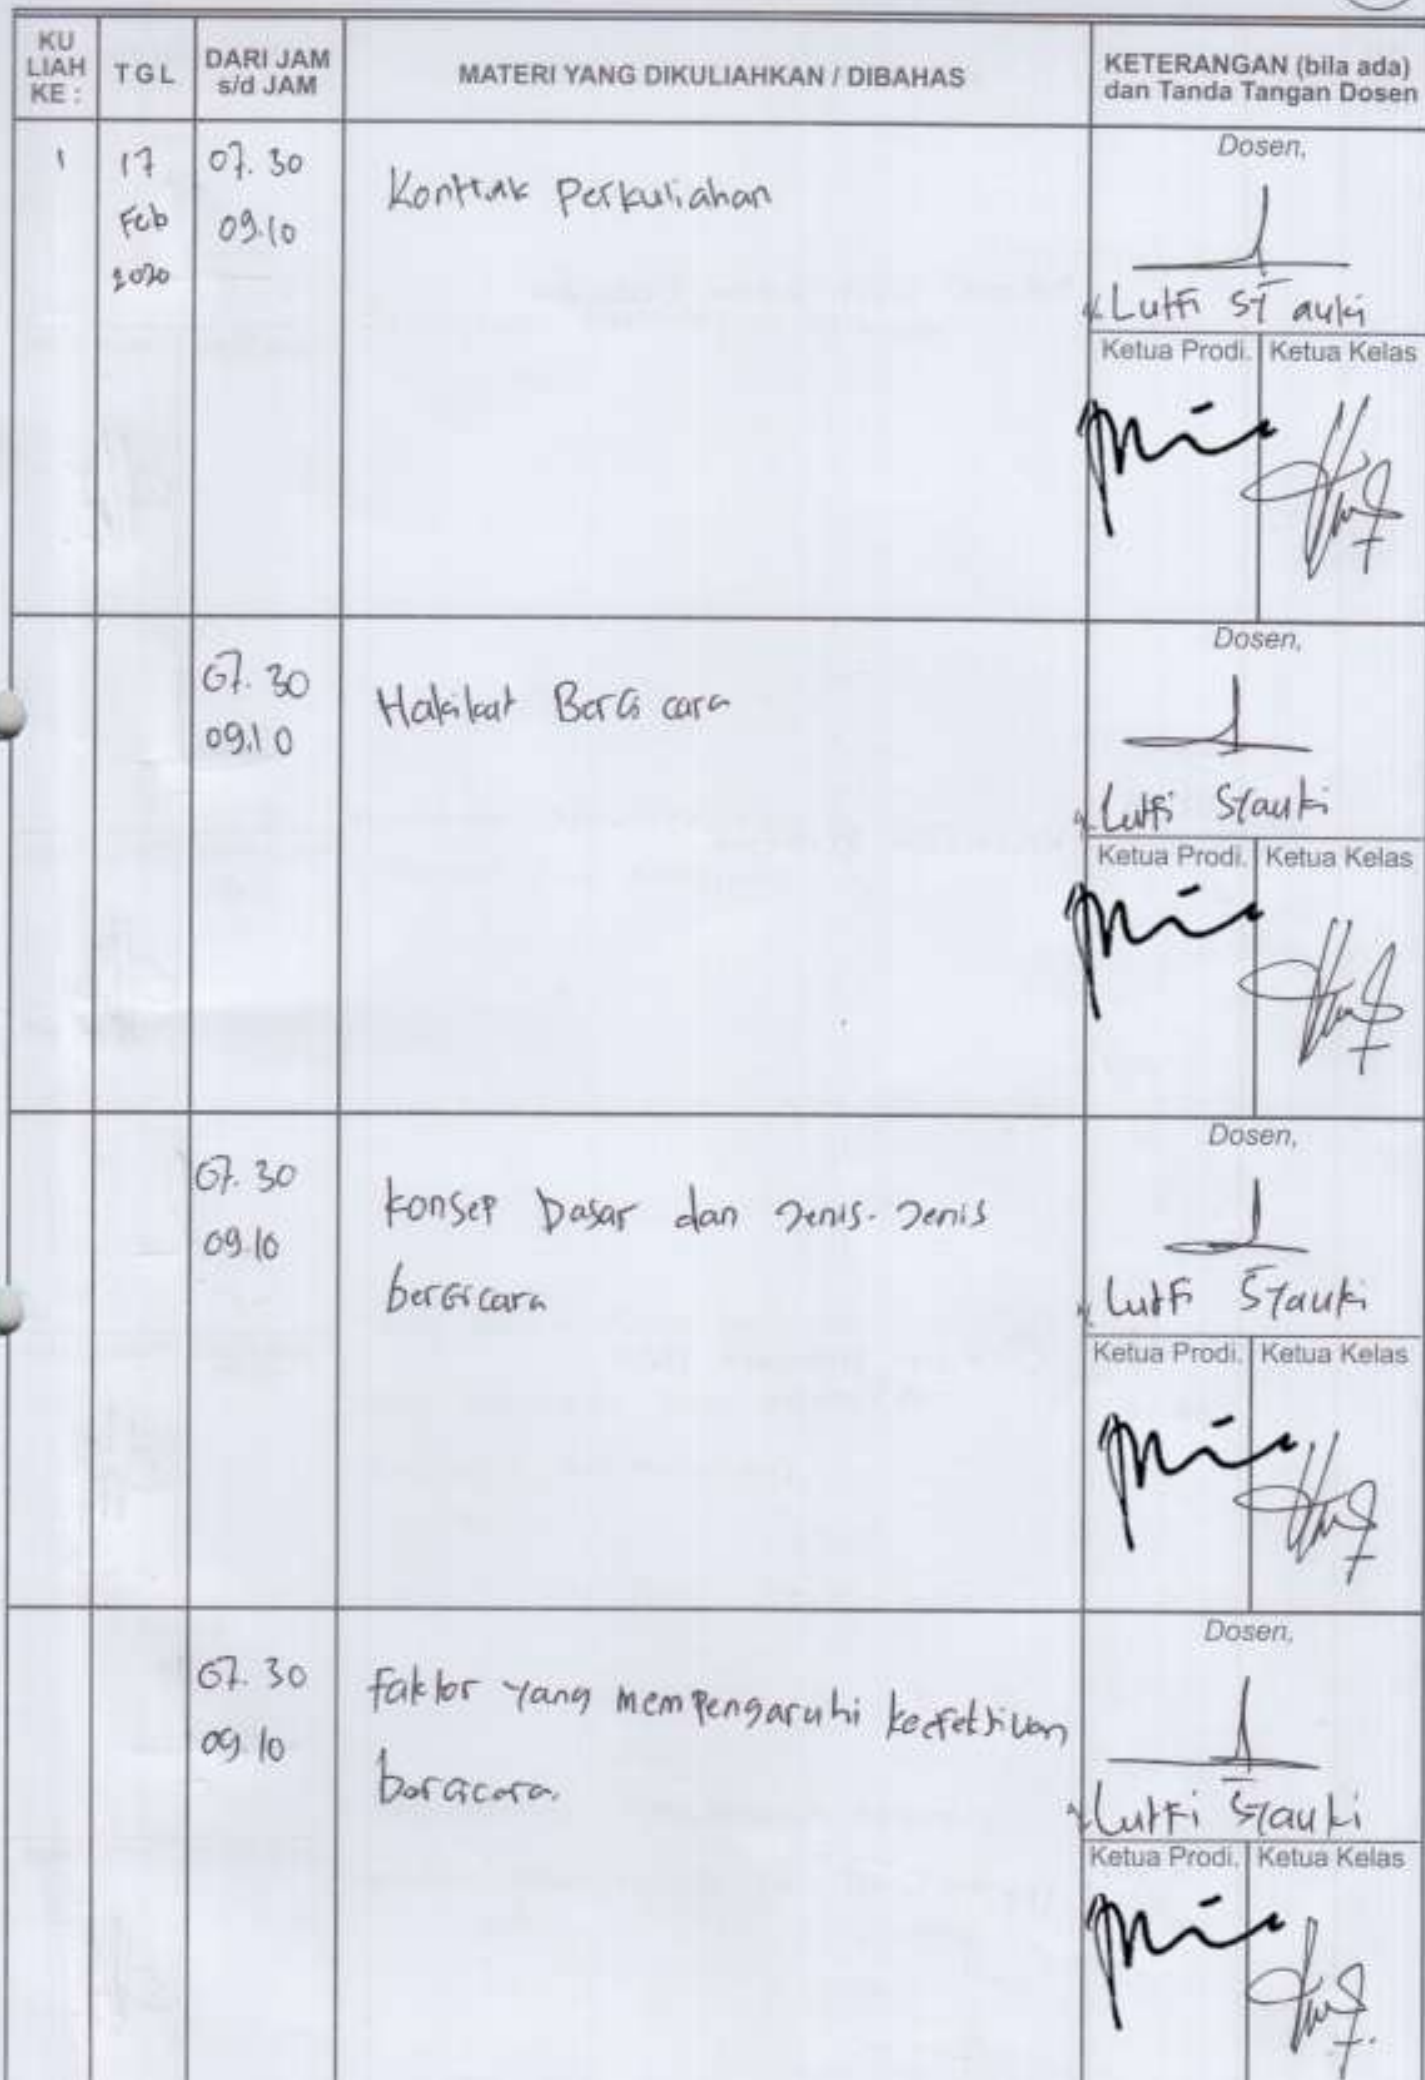 KU LIAH KE :
TGL
DARI JAM s/d JAM
MATERI YANG DIKULIAHKAN / DIBAHAS
KETERANGAN (bila ada) dan Tanda Tangan Dosen
1
17 Feb 2020
07.30
09.10
Kontrak Perkuliahan
Dosen,
Lutfi Syauki
Ketua Prodi.
Ketua Kelas
07.30
09.10
Hakikat Berbicara
Dosen,
Lutfi Syauki
Ketua Prodi.
Ketua Kelas
07.30
09.10
Konsep Dasar dan Jenis-Jenis
berbicara
Dosen,
Lutfi Syauki
Ketua Prodi.
Ketua Kelas
07.30
09.10
Faktor yang mempengaruhi keefektivan
berbicara.
Dosen,
Lutfi Syauki
Ketua Prodi.
Ketua Kelas